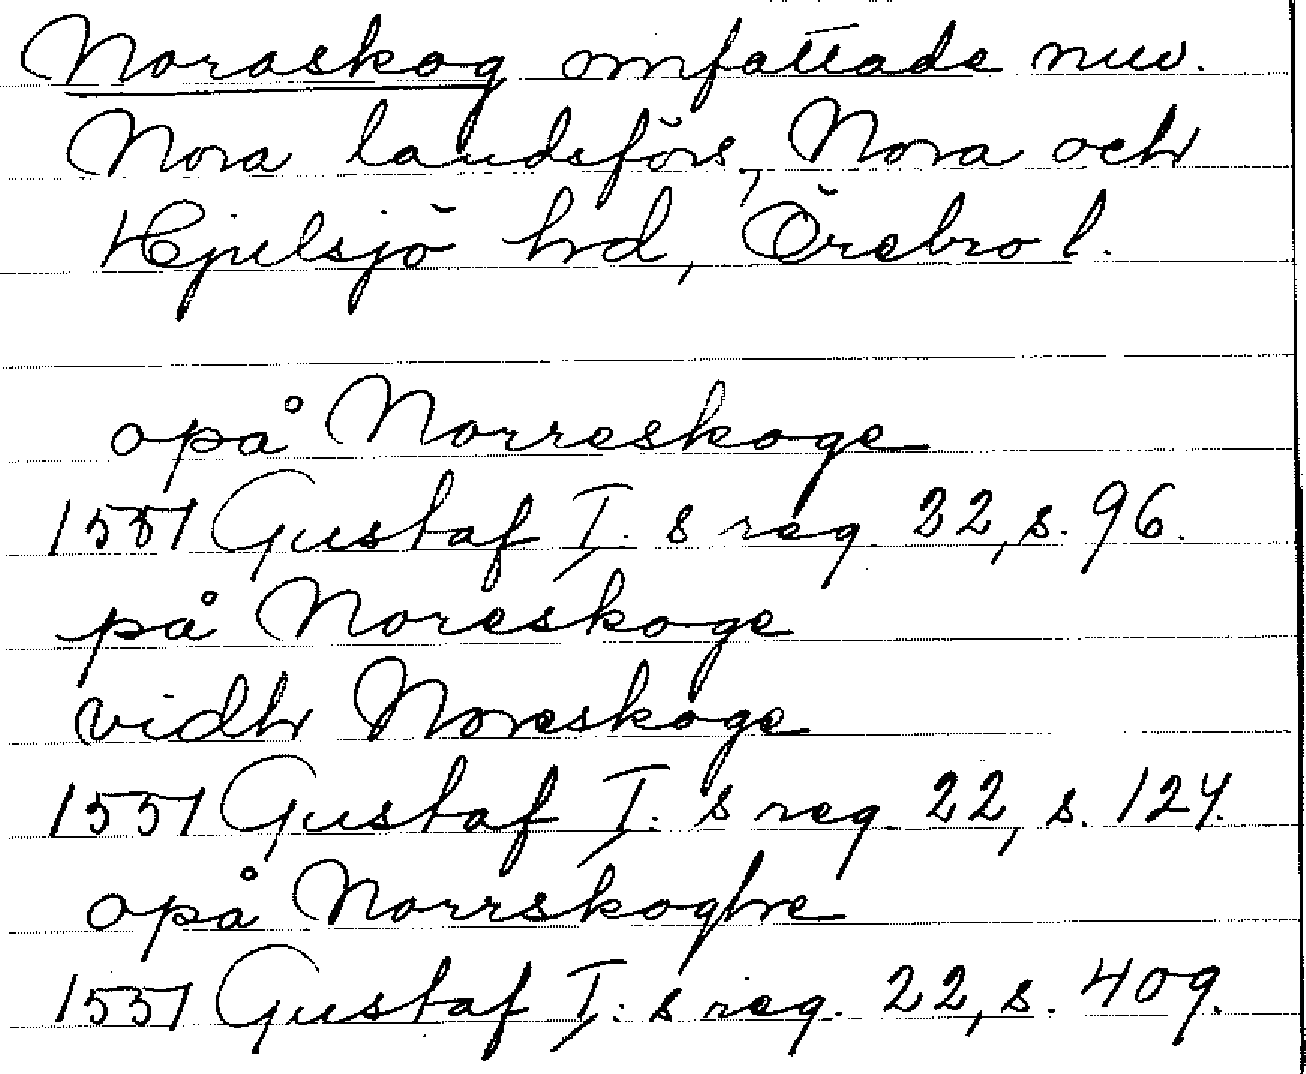 Noraskog omfattade nuv.
Nora landsförs, Nora och
Hjulsjö hrd, Örebro l.
opå Norreskoge
1551 Gustaf I:s reg. 22, s. 96.
på Noreskoge
vidh Noreskoge
1551 Gustaf I:s reg. 22, s. 124.
opå Norrskoghe
1551 Gustaf I:s reg. 22, s. 409.